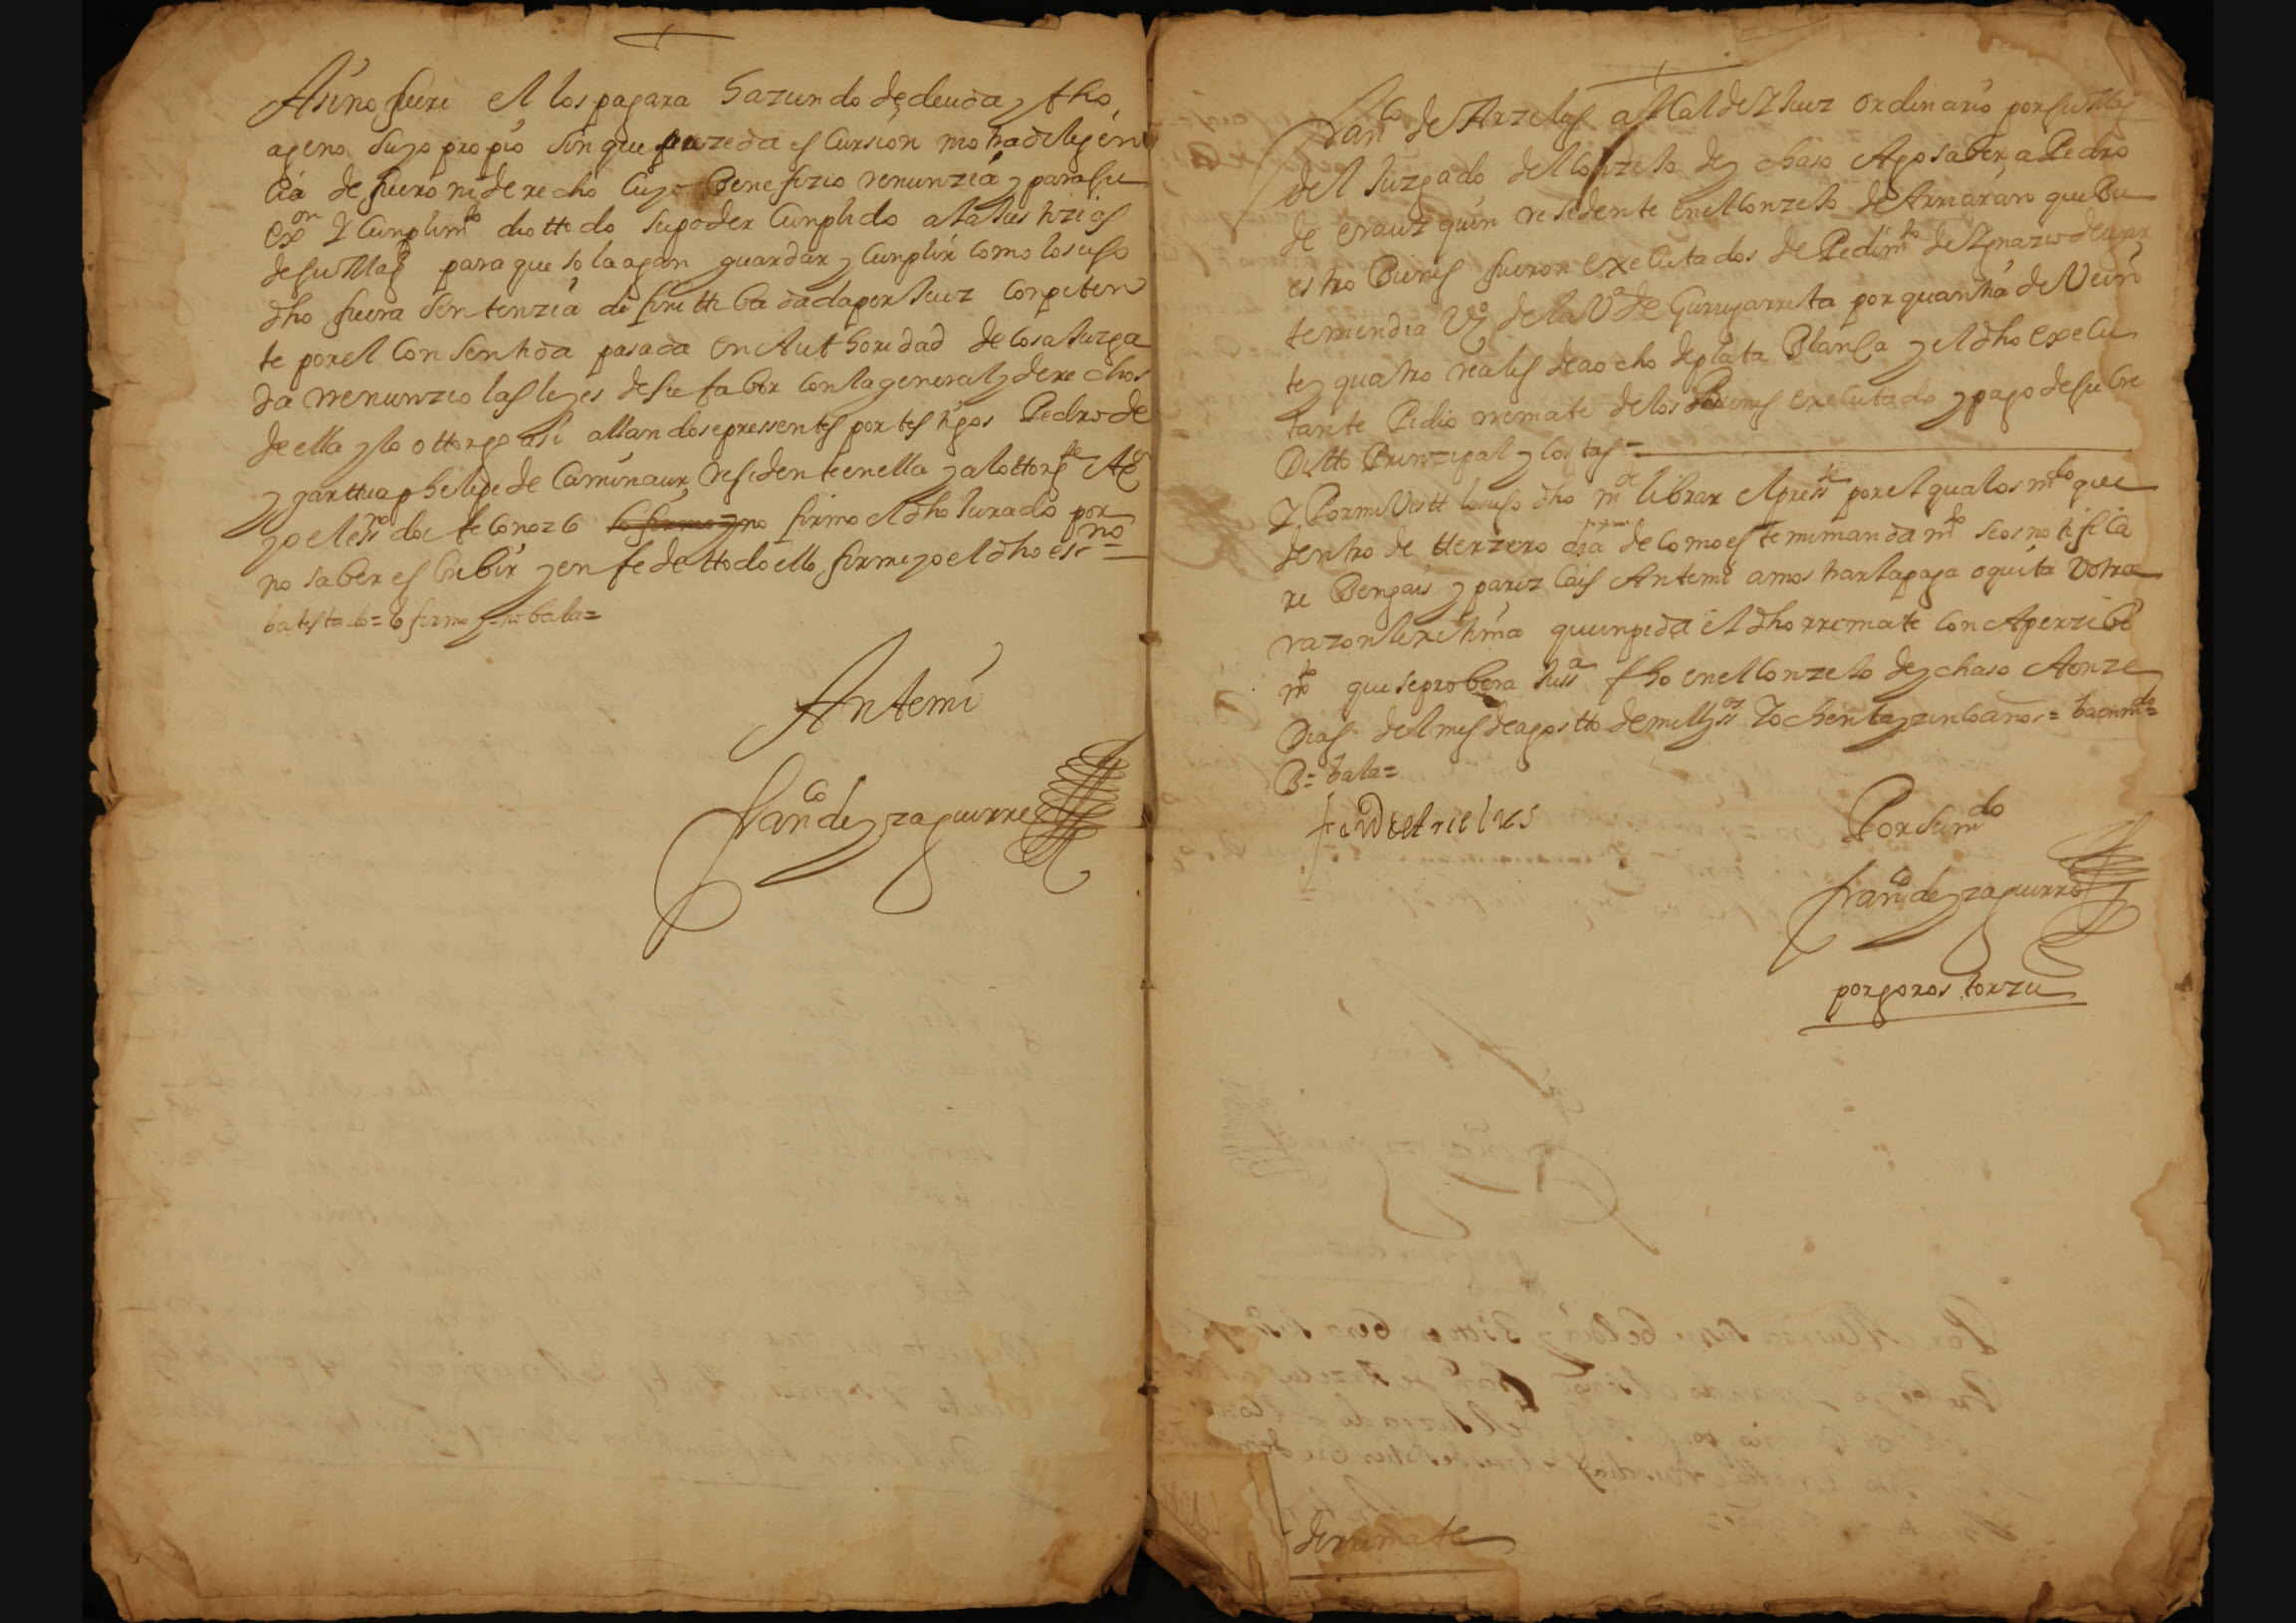 Asino fuere el los pagara haziendo de deuda y fho
ageno suyo propio sin que prezeda escursion ni otra dilijen
cia de fuero ni de recho cuyo Benefizio renunzia y para su
exon Y Cunplimto dio ttodo su poder Cunplido a las Justizias
de su Magd para que se lo agan guardar y Cunplir como lo suso
dho fuera sentenzia difinittiba dada por Juez conpeten
te por el Consentida pasada en Authoridad de cosa Juzga
da rrenunzio las leyes de su fabor con la general y derechos
de ella y lo ottorgo asi allandose pressentes por testigos Pedro de
y phelipe de Caminaur residente en ella y al ottorgte
yo el essno doi fe conozco lo firmo y no firmo el dho Jurado por
no saber escribir y en fe de ttodo ello firme yo el dho essno=
ba testado= lo firmo y= no bala=
Ante mi
Franco de yzaguirre
Franco de Arzelus alcalde Y Juez ordinario por su Magd
del Juzgado del Conzejo de ychaso Ago saber a Pedro
de erauzquin residente en el Conzejo de Arriaran que Bu
estros Bienes fueron executados de Pedimto de Ygnazio de
temendia Vo de la Va de Gurrujarrieta por quantia de Vein
te y quatro reales de a ocho de plata Blanca y el dho execu
tante Pidio rremate de los Bienes executados y pago de su Cre
ditto Prinzipal y costas=
Y Por mi Vistt lo suso dho mde librar el presste por el qual os mdo que
dentro de tterzero dia de como este mi mandamto os no tifica
re Bengais y parezcais Ante mi a mostrar la paga o quita V otra
razon lexitima que inpida el dho rremate con Aperzibi
mto que se probera Jussa fho en el Conzejo de ychaso A onze
Dias del mes de agostto de mill y ssos Y ochenta y zinco años= ba enmdo=
B= bala=
frco de arzelus
Por su mdo
Franco de yzaguirre
por goros torzu
de rremate